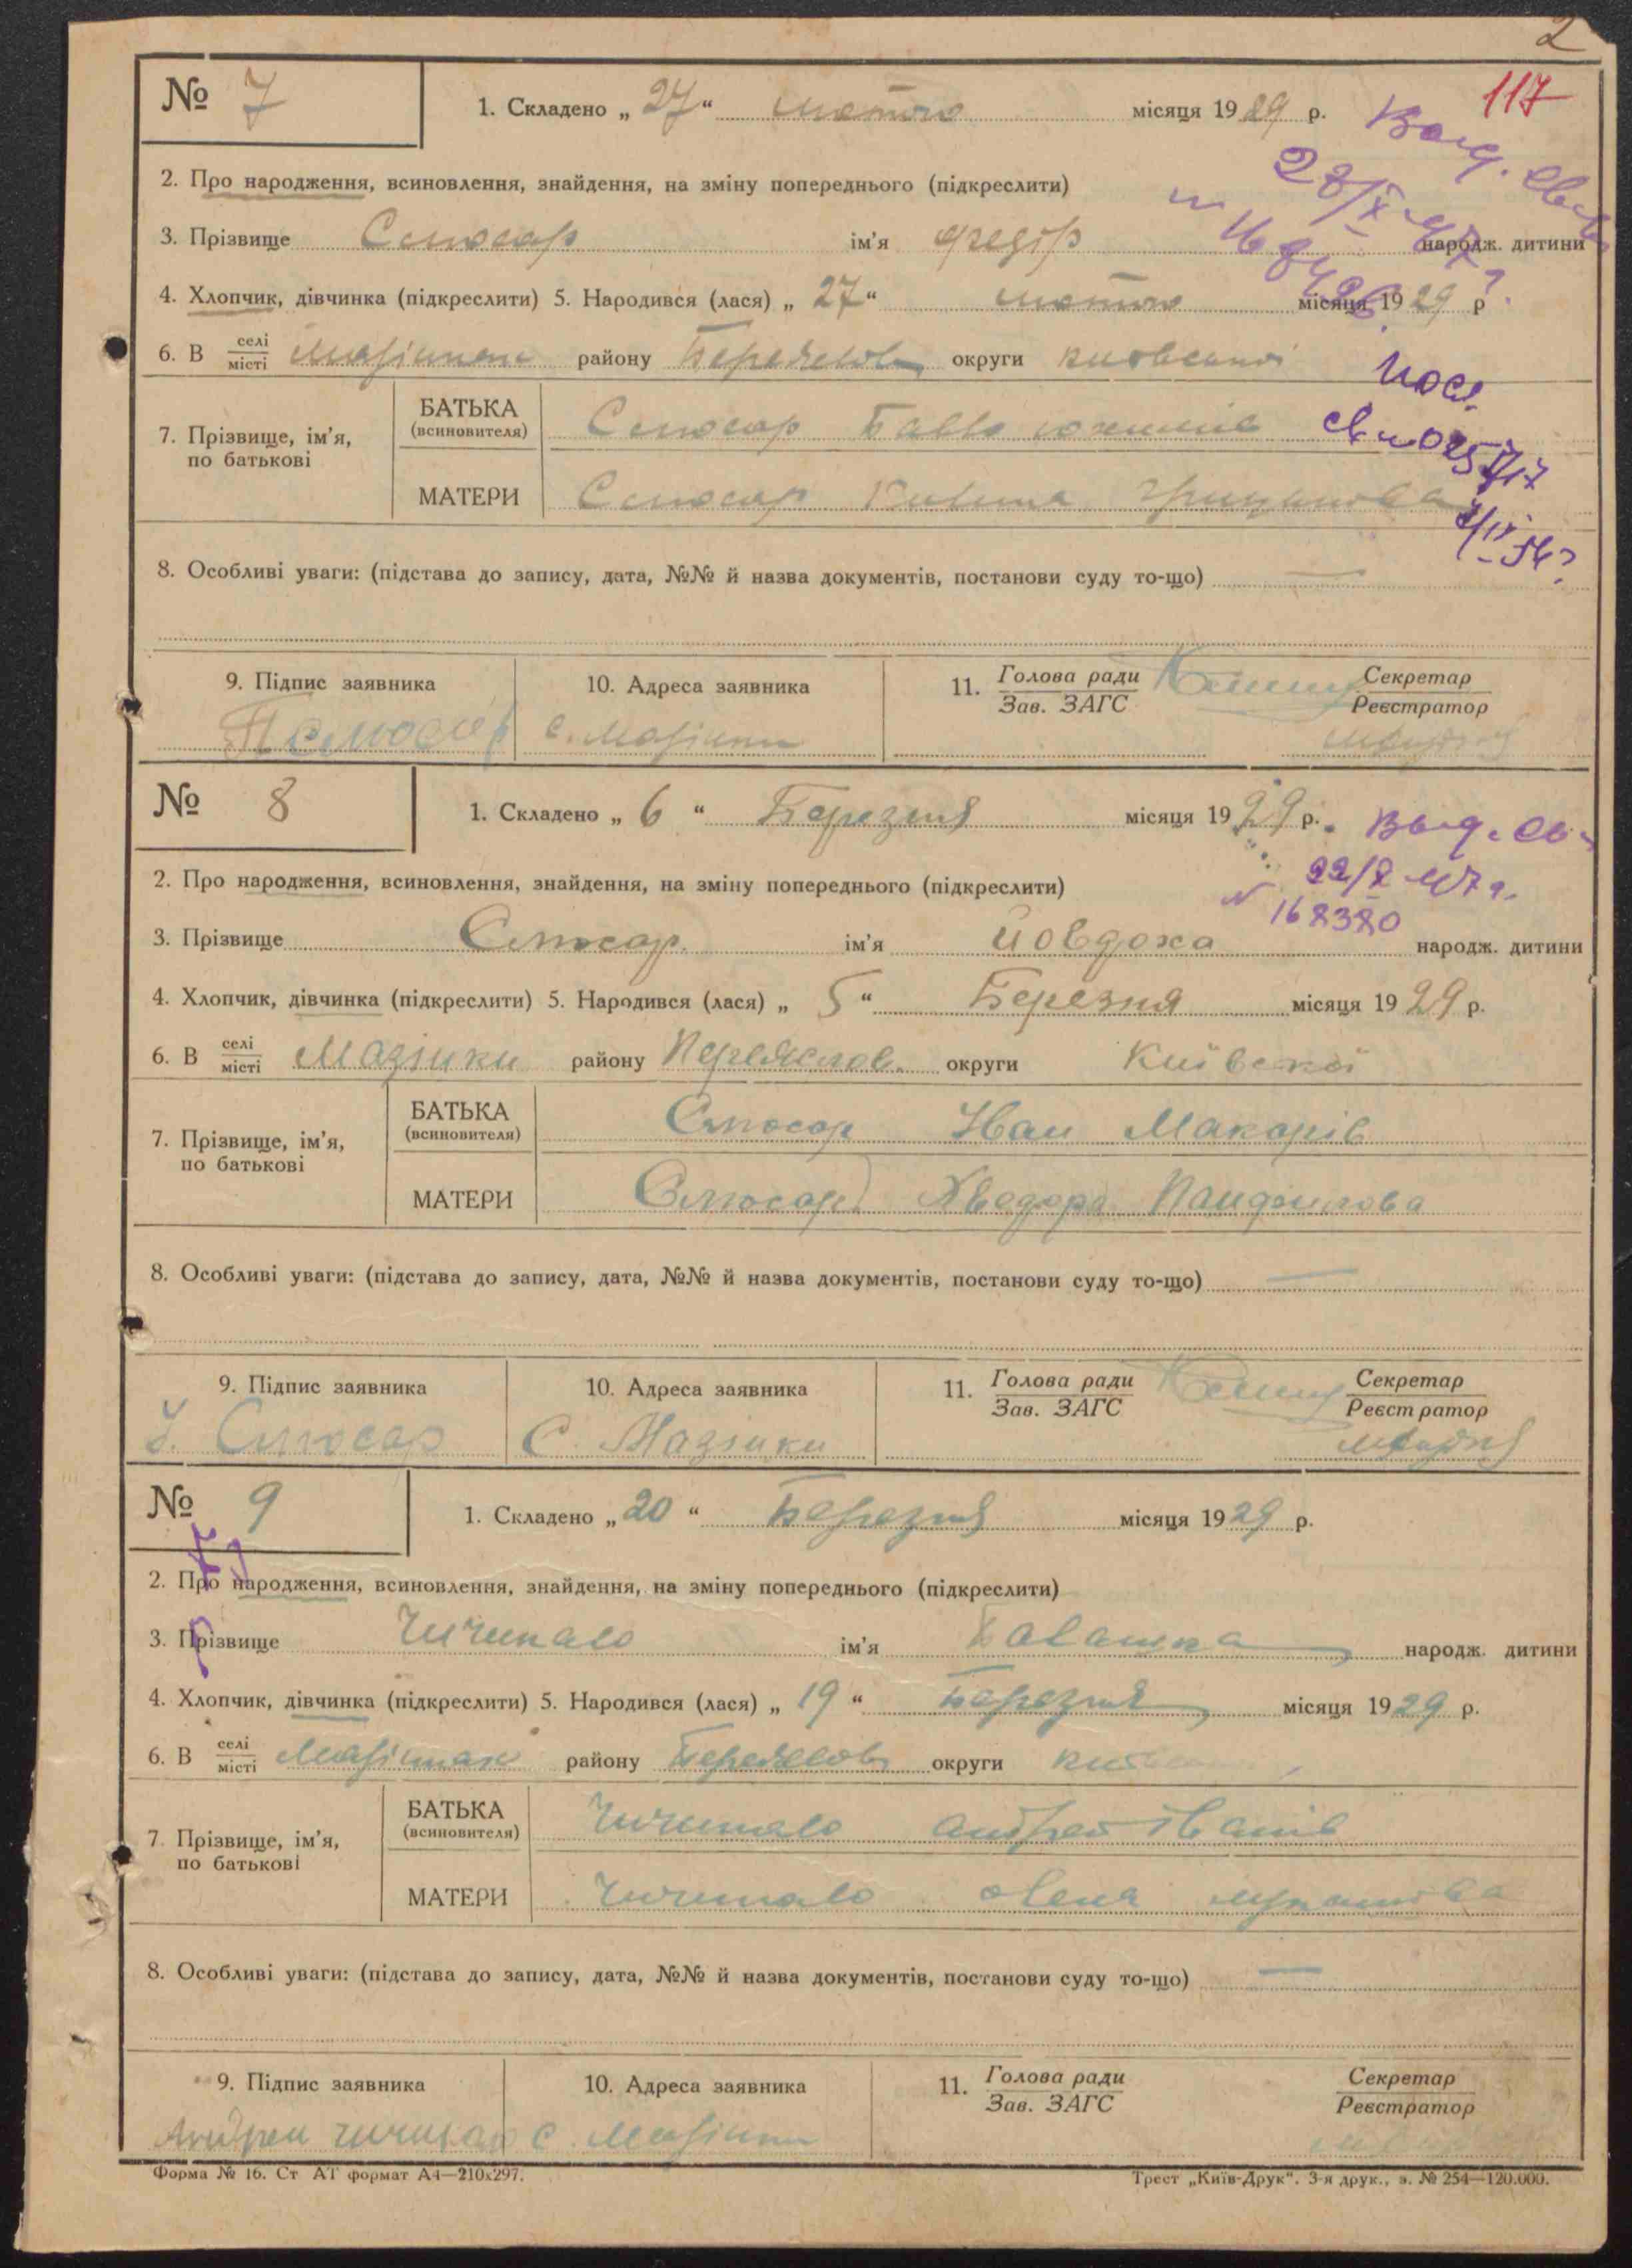 2
117
№ 7
1. Складено „ 27 “ лютого місяця 1929 р.
Выд. свид.
2. Про народження, всиновлення, знайдення, на зміну попереднього (підкреслити)
3. Прізвище Слюсар ім'я Федір народж. дитини
4. Хлопчик, дівчинка (підкреслити) 5. Народився (лася) „ 27 “ лютого місяця 1929 р
6. В селі місті району Переяслов округи
7. Прізвище, ім'я, по батькові
БАТЬКА (всиновителя) Слюсар Павло
МАТЕРИ Слюсар
8. Особливі уваги: (підстава до запису, дата, №№ й назва документів, постанови суду то-що) —
9. Підпис заявника
10. Адреса заявника
11. Голова ради Зав. ЗАГС
Секретар Реєстратор
П Слюсар
с. Мазінки
№ 8
1. Складено „ 6 “ Березня місяця 1929 р.
Выд. св
22/X 47 г.
№ 168380
2. Про народження, всиновлення, знайдення, на зміну попереднього (підкреслити)
3. Прізвище Слюсар ім'я Йовдоха народж. дитини
4. Хлопчик, дівчинка (підкреслити) 5. Народився (лася) „ 5 “ Березня місяця 1929 р.
6. В селі місті Мазінки району Переяслов. округи Київської
7. Прізвище, ім'я, по батькові
БАТЬКА (всиновителя) Слюсар Иван Макарів
МАТЕРИ Слюсар Хведора Панфилова
8. Особливі уваги: (підстава до запису, дата, №№ й назва документів, постанови суду то-що) —
9. Підпис заявника
10. Адреса заявника
11. Голова ради Зав. ЗАГС
Секретар Реєстратор
І. Слюсар
С. Мазінки
№ 9
1. Складено „ 20 “ Березня місяця 1929 р.
2. Про народження, всиновлення, знайдення, на зміну попереднього (підкреслити)
3. Прізвище ім'я Палажка народж. дитини
4. Хлопчик, дівчинка (підкреслити) 5. Народився (лася) „ 19 “ Березня місяця 1929 р.
6. В селі місті району Переяслов округи
7. Прізвище, ім'я, по батькові
БАТЬКА (всиновителя) Андрей Іванів
МАТЕРИ Олена
8. Особливі уваги: (підстава до запису, дата, №№ й назва документів, постанови суду то-що) —
9. Підпис заявника
10. Адреса заявника
11. Голова ради Зав. ЗАГС
Секретар Реєстратор
Андреи
с. Мазінки
Форма № 16. Ст АТ формат А4—210х297.
Трест „Київ-Друк“. 3-я друк., з. № 254—120.000.